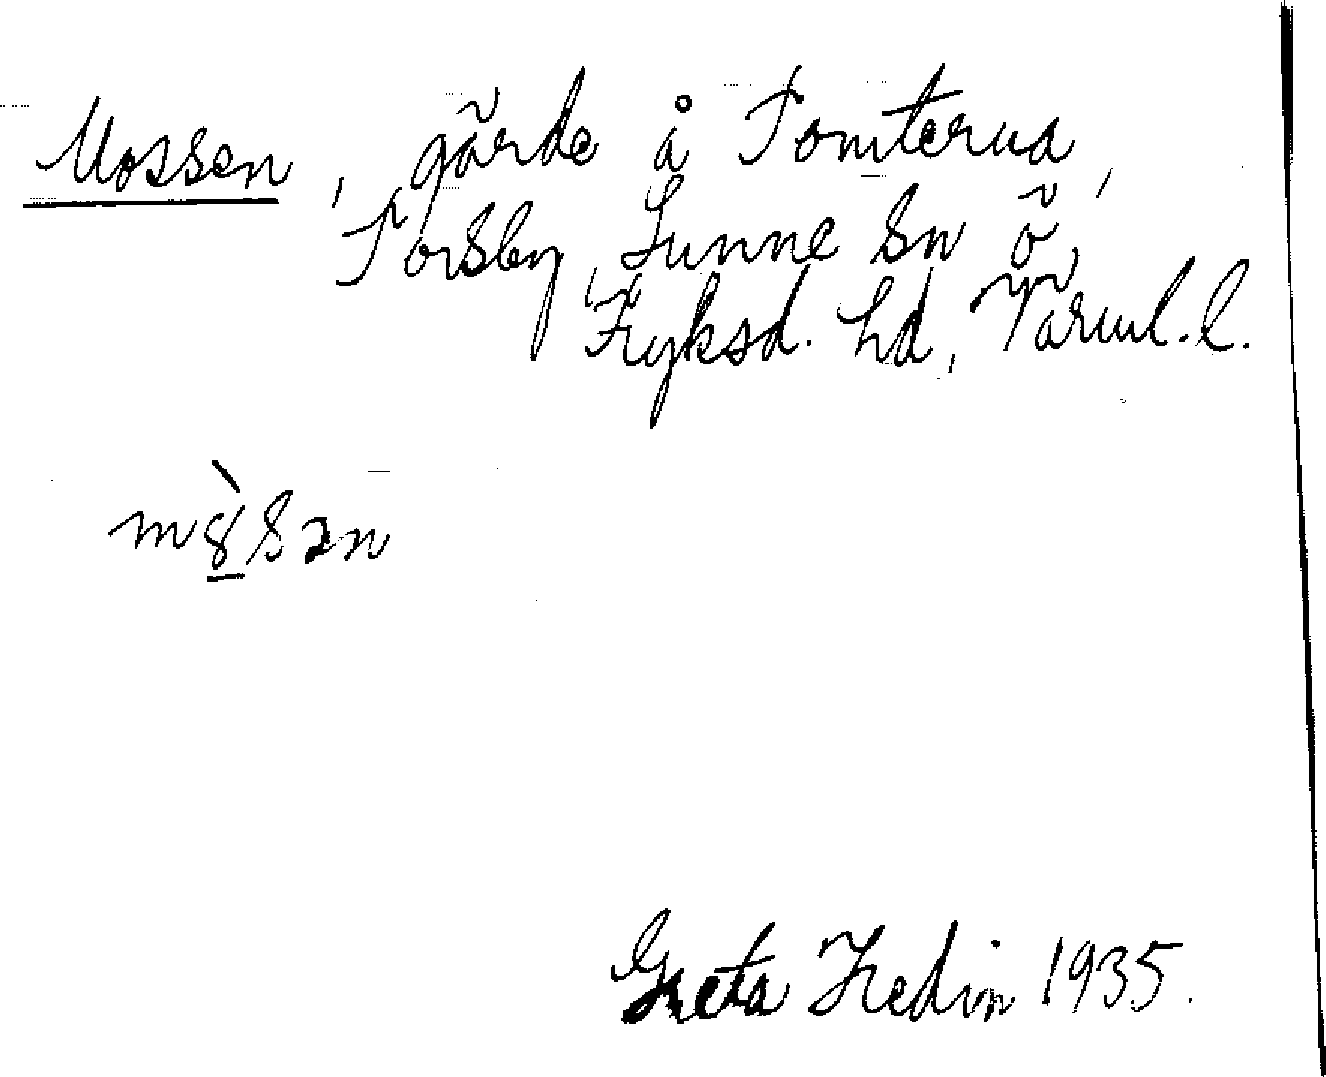 Mossen, gärde å Tomterud,
Torsby, Sunne sn ö,
Fryksd. hd, Värml. l.
mö̱̀sən
Greta Hedin 1935.